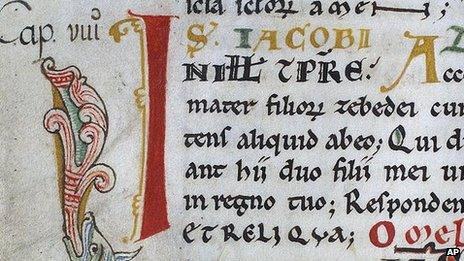 Cap. viii
S. IACOBI
IN ILL T PRE: Acc
mater filiorum zebedei cum
tens aliquid ab eo; Qui d
ant hii duo filii mei un
in regno tuo; Responden
ET RELIQVA; O
AP